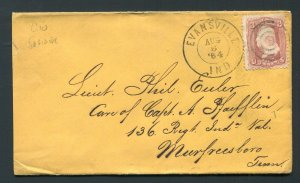 EVANSVILLE
AUG
8
'64
IND
Lieut. Phil. Euler
Care of Capt. A. Pfafflin
136. Regt. Ind. Vol.
Murfreesboro
Tenn.